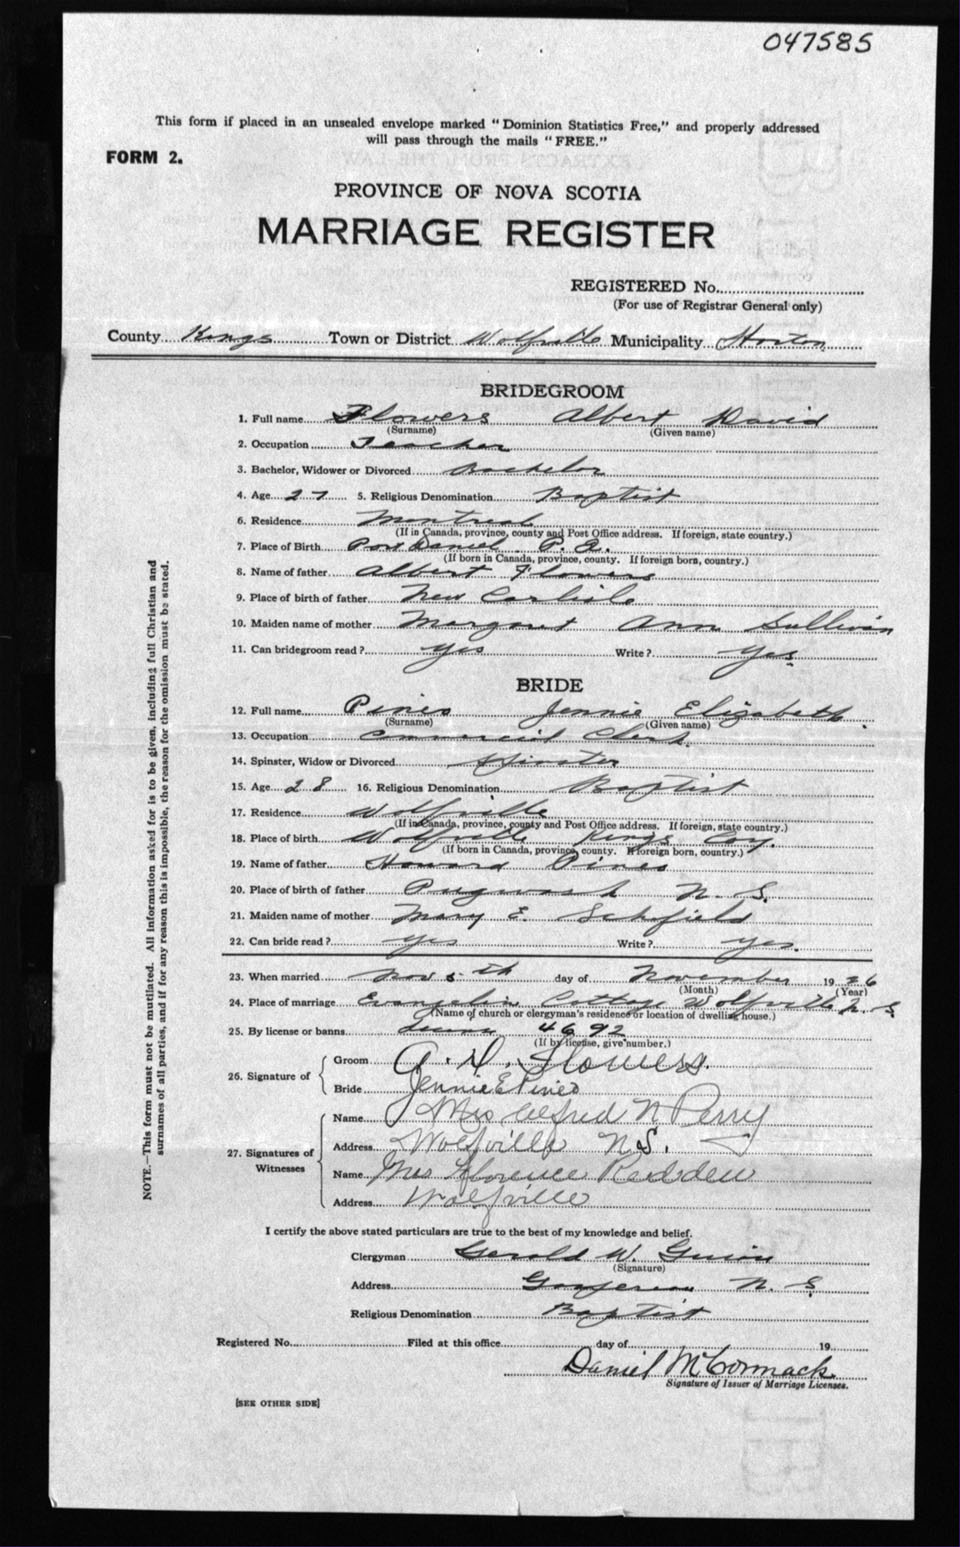 047585
This form if placed in an unsealed envelope marked "Dominion Statistics Free," and properly addressed
will pass through the mails "FREE."
FORM 2.
PROVINCE OF NOVA SCOTIA
MARRIAGE REGISTER
REGISTERED No.
(For use of Registrar General only)
County Kings Town or District Wolfville Municipality Horton
BRIDEGROOM
1. Full name Flowers Albert David
(Surname) (Given name)
2. Occupation Teacher
3. Bachelor, Widower or Divorced Bachelor
4. Age 27 5. Religious Denomination Baptist
6. Residence Montreal
(If in Canada, province, county and Post Office address. If foreign, state country.)
7. Place of Birth Port Daniel P. Q.
(If born in Canada, province, county. If foreign born, country.)
8. Name of father Albert Flowers
9. Place of birth of father New Carlisle
10. Maiden name of mother Margaret Ann Sullivan
11. Can bridegroom read? yes Write? yes
BRIDE
12. Full name Pineo Jennie Elizabeth.
(Surname) (Given name)
13. Occupation Commercial Clerk.
14. Spinster, Widow or Divorced Spinster
15. Age 28 16. Religious Denomination Baptist
17. Residence Wolfville
(If in Canada, province, county and Post Office address. If foreign, state country.)
18. Place of birth Wolfville Kings Coy.
(If born in Canada, province, county. If foreign born, country.)
19. Name of father Howard Pineo
20. Place of birth of father Pugwash N. S.
21. Maiden name of mother Mary E Schofield
22. Can bride read? yes Write? yes.
23. When married Nov 5th day of November 1926
(Month) (Year)
24. Place of marriage Evangeline Cottage Wolfville N. S
(Name of church or clergyman's residence or location of dwelling house.)
25. By license or banns 4692
(If by license, give number.)
26. Signature of
Groom A. D. Flowers.
Bride Jennie E Pineo
27. Signatures of Witnesses
Name Mrs Alfred N Perry
Address Wolfville N.S.
Name Mrs Florence Redden
Address Wolfville
I certify the above stated particulars are true to the best of my knowledge and belief.
Clergyman Gerald W. Guiou
(Signature)
Address Gaspereau N. S.
Religious Denomination Baptist
Registered No. Filed at this office day of 19
Daniel McCormack
Signature of Issuer of Marriage Licenses.
[SEE OTHER SIDE]
NOTE.—This form must not be mutilated. All information asked for is to be given, including full Christian and
surnames of all parties, and if for any reason this is impossible, the reason for the omission must be stated.